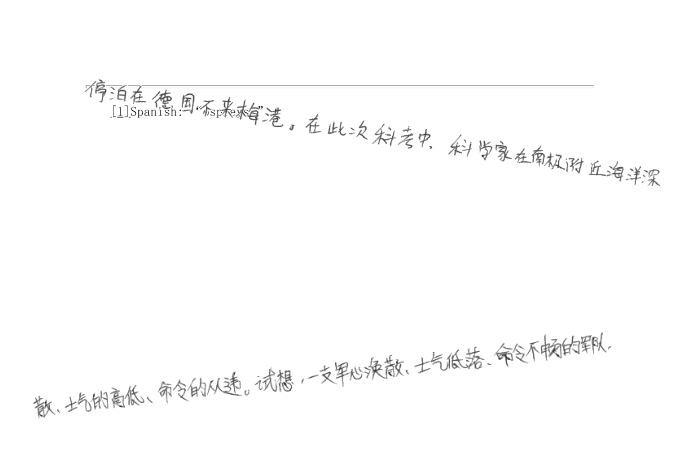 停泊在德国“不来梅”港。在此次科考中，科学家在南极附近海洋深
[1]Spanish:
散、士气的高低、命令的从违。试想，一支军心涣散、士气低落、命令不畅的军队，